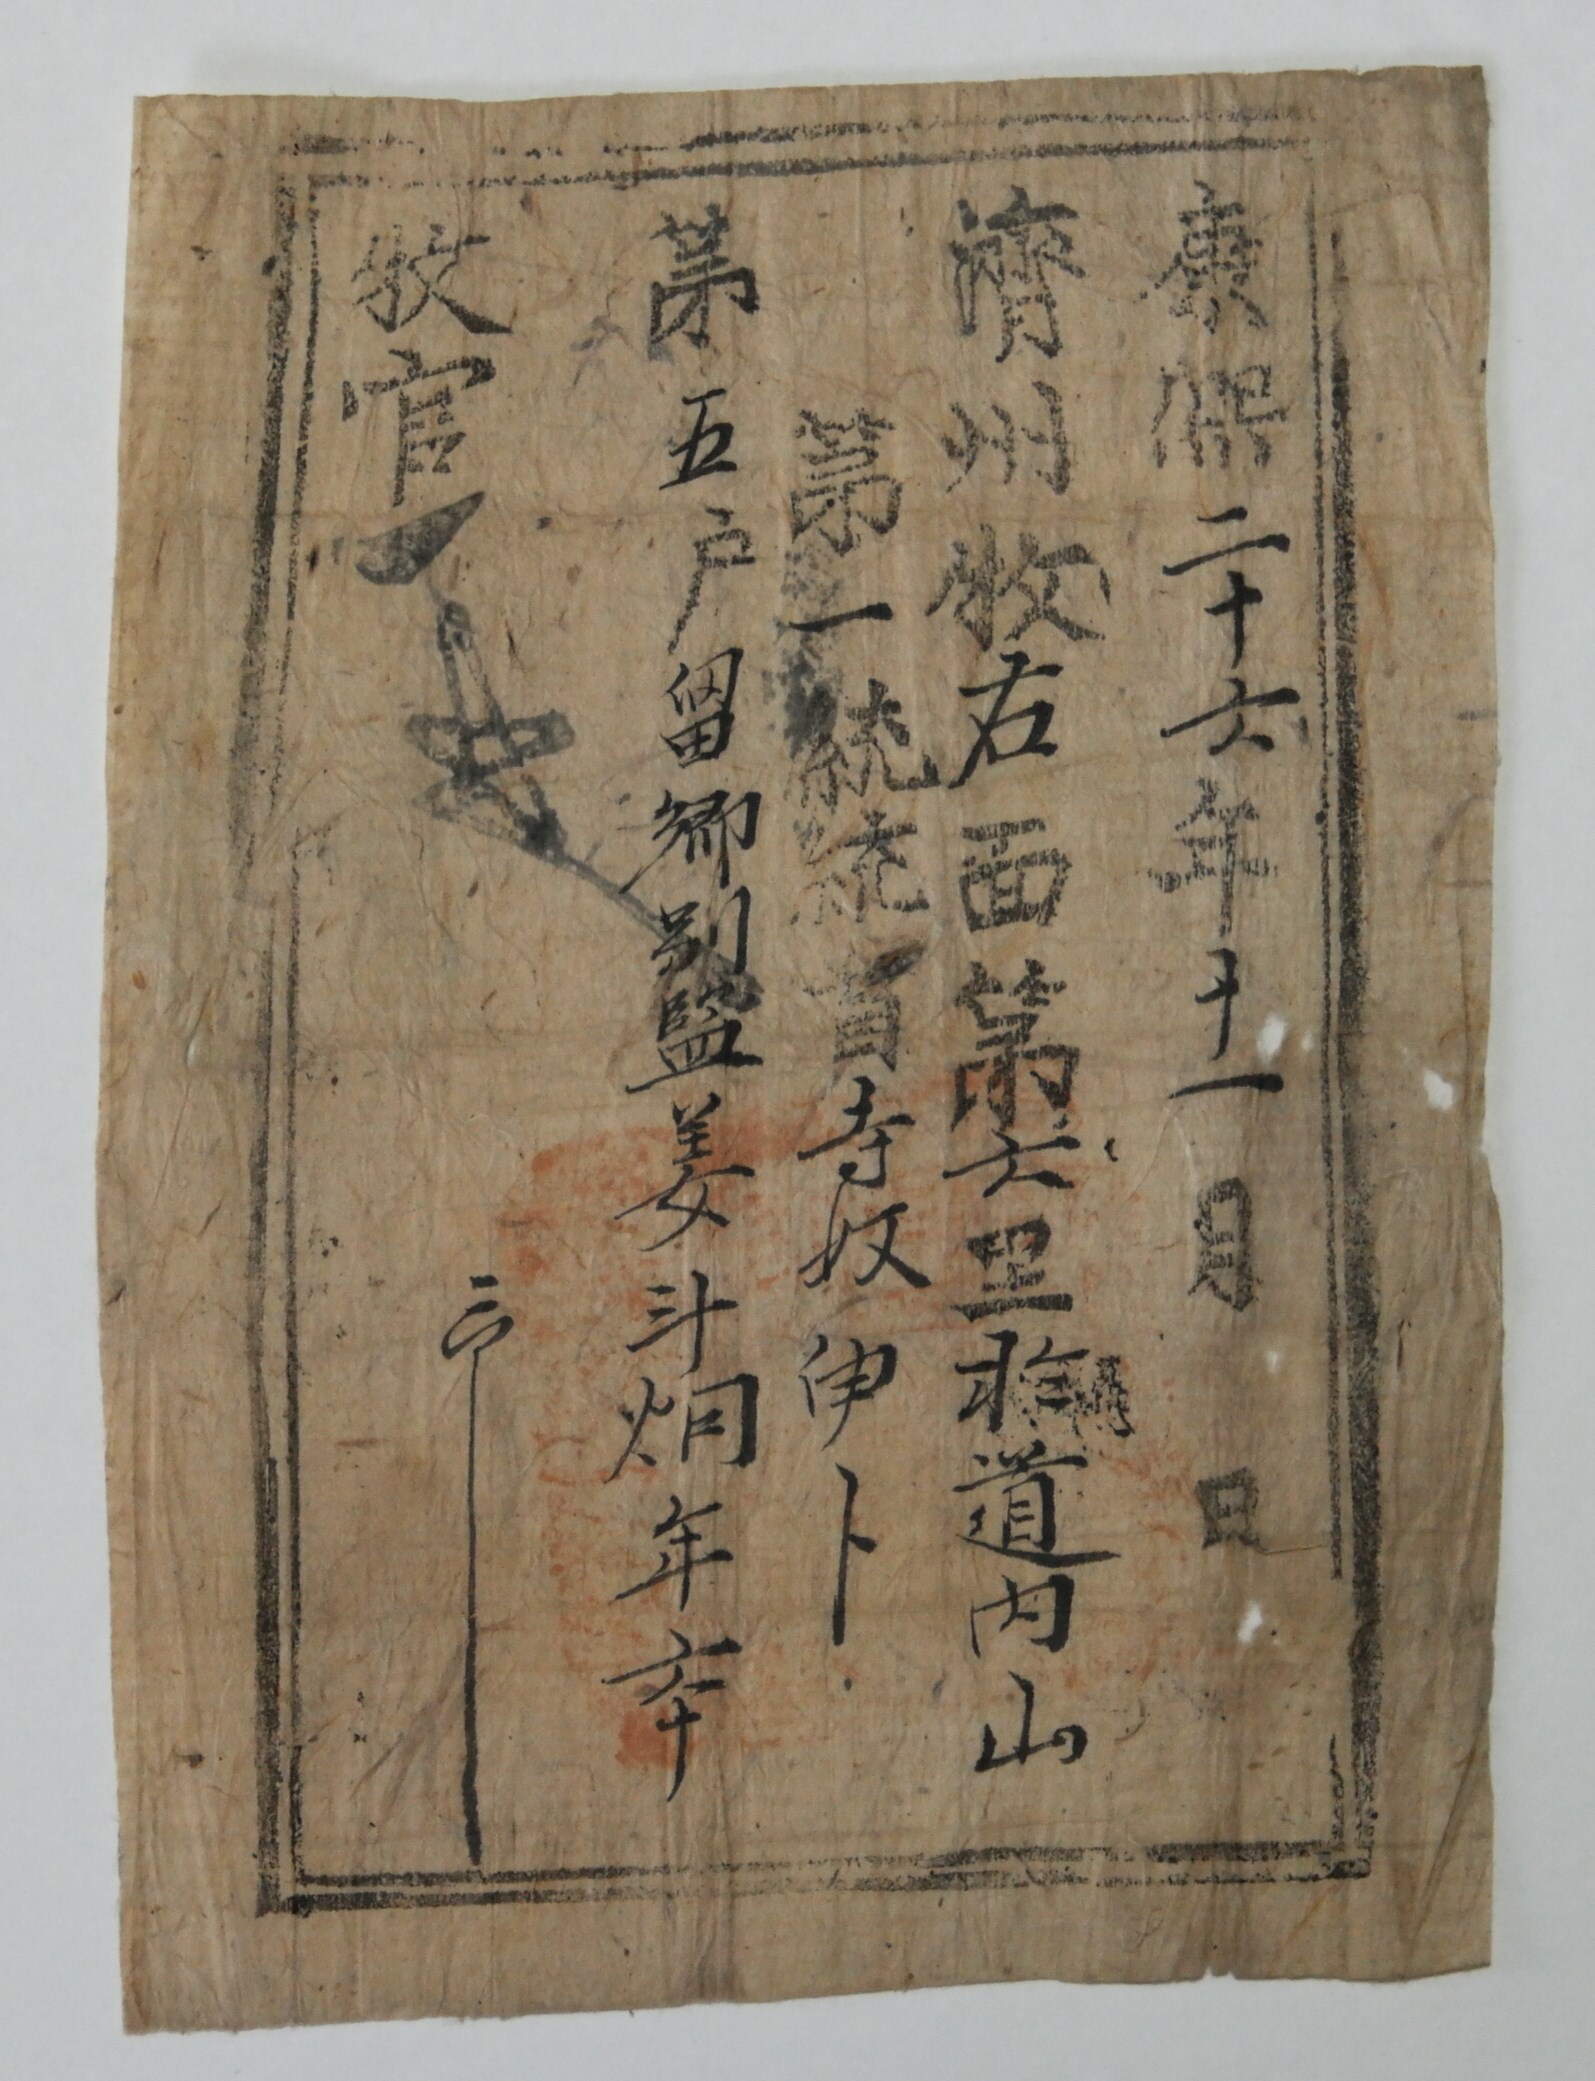 康熙二十六年十一月日
濟州牧右面第六里都近道內山
第一統統首寺奴伊卜
第五戶留鄕別監姜斗炯年六十
牧官
印